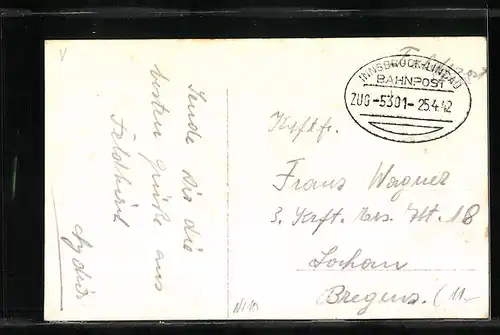 Sende dir die
besten Grüße aus
Feldkirch
Feldpost
INNSBRUCK-LINDAU
BAHNPOST
ZUG -5301- 25.4.42
Kftf.
Franz Wagner
3. Krft. Ers. Abt. 18
Lochau
Bregenz. (11.-